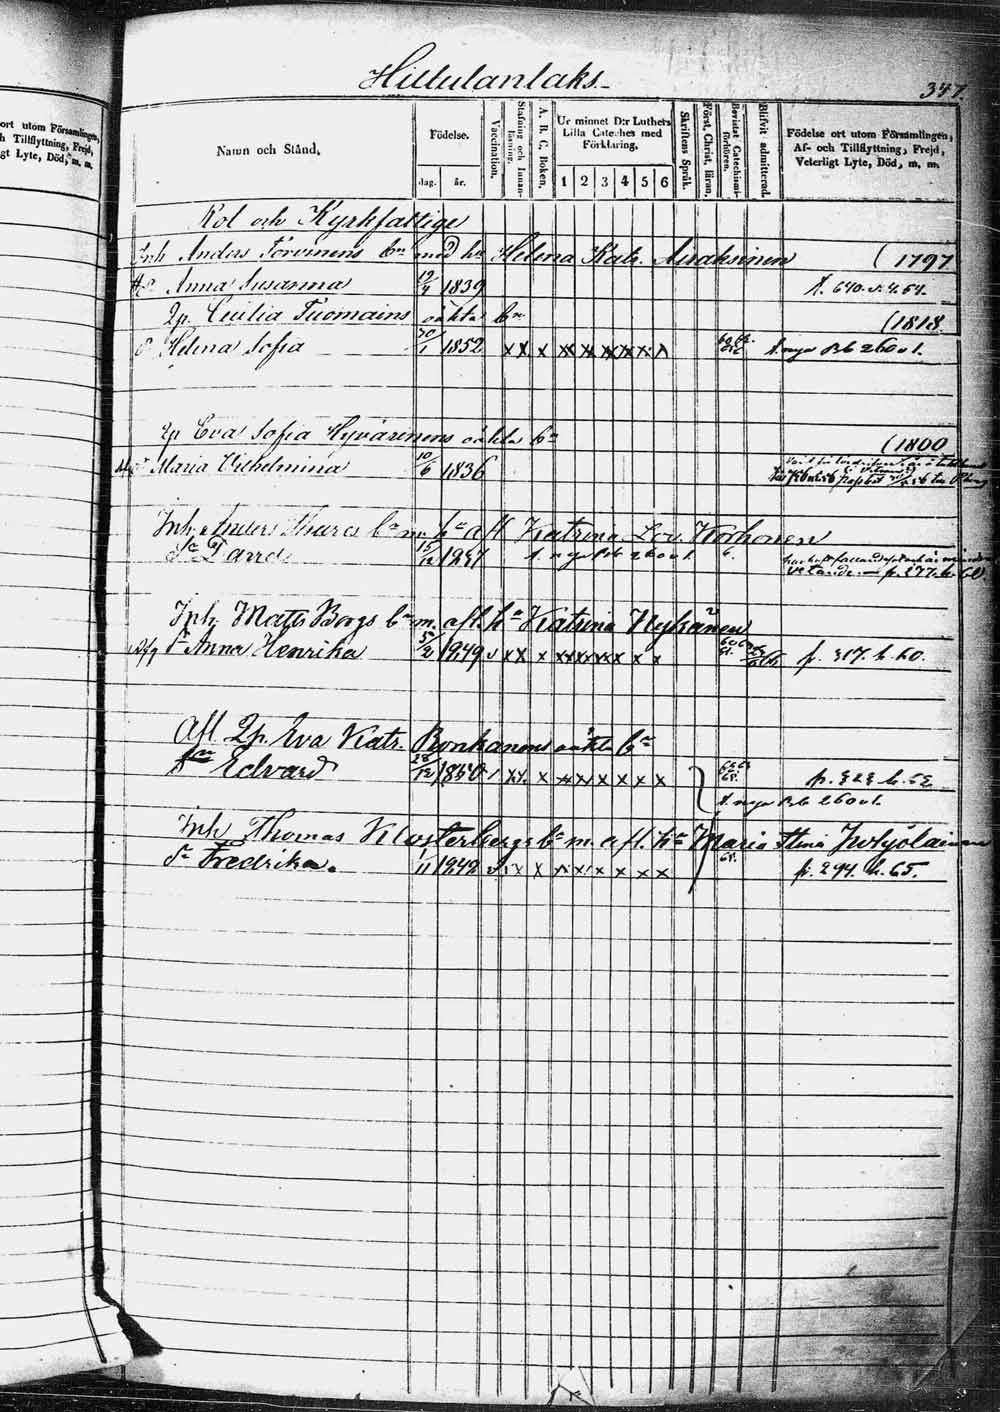 Hiltulanlaks
347.
ort utom Församlingen,
h Tillflyttning, Frejd,
gt Lyte, Död, m. m.
Namn och Stånd.
Födelse.
dag. år.
Vaccination.
Stafning och Innan-
läsning.
A. B. C. Boken.
Ur minnet D:r Luthers
Lilla Cateches med
Förklaring.
1 2 3 4 5 6
Skriftens Språk.
Först. Christ. läran.
Bevistat Catechismi-
förhören.
Blifvit admitterad.
Födelse ort utom Församlingen,
Af- och Tillflyttning, Frejd,
Veterligt Lyte, Död, m. m.
Rot och Kyrkfattige
Inh Anders Torvinens bn med hu Helena Katr. (1797
Anna Susanna 12/4 1839 f. 640.
Qp. Cecilia Tuomains oäkta bn (1818.
d Helena Sofia 30/1 1852 x x x x x x x x f. nya Rb 260 v 1.
Qp Eva Sofia Hyvärinens oäkta bn (1800
Maria Vilhelmina 10/6 1836
Inh. Anders Thures bn m. hu afl Katrina Lov. Korhonen
f. nya Rb 260 v 1. 6. p. 277. k. 60.
Inh. Matts Borgs bn m. afl. hu Katrina Nykänen
dr Anna Henrika 5/2 1849 x x x x x x x x x p. 317. k. 60.
Afl Qp. Eva Katr. Ronkanens oäkta bn
sn Edvard 28/12 1850 x x x x x x x x x p. 323 k. 62
f. nya Rb 260 v 1.
Inh Thomas Klosterbergs bn m. afl. hu Maria Stina
dr Fredrika. 1842 x x x x x x x 68. p. 294. k. 65.